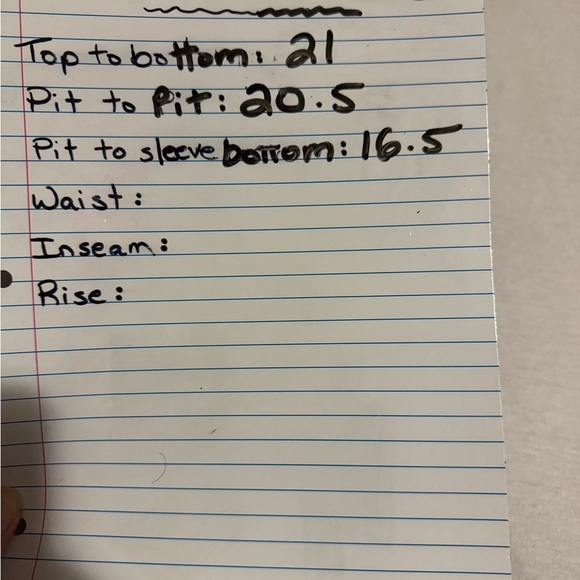 Top to bottom: 21
Pit to Pit: 20.5
Pit to sleeve bottom: 16.5
Waist:
Inseam:
Rise: